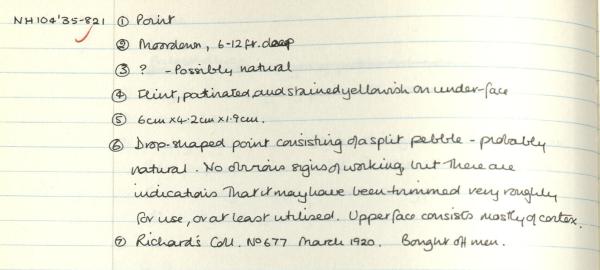 NH104'35-821 ① Point
② Moordown, 6-12ft. deep
③ ? - Possibly natural
④ Flint, patinated, and stained yellowish on under-face
⑤ 6cm x 4.2cm x 1.9cm.
⑥ Drop-shaped point consisting of a split pebble - probably
natural. No obvious signs of working, but there are
indications that it may have been trimmed very roughly
for use, or at least utilised. Upper face consists mostly of cortex.
⑦ Richard's Coll. No 677 March 1920. Bought off men.